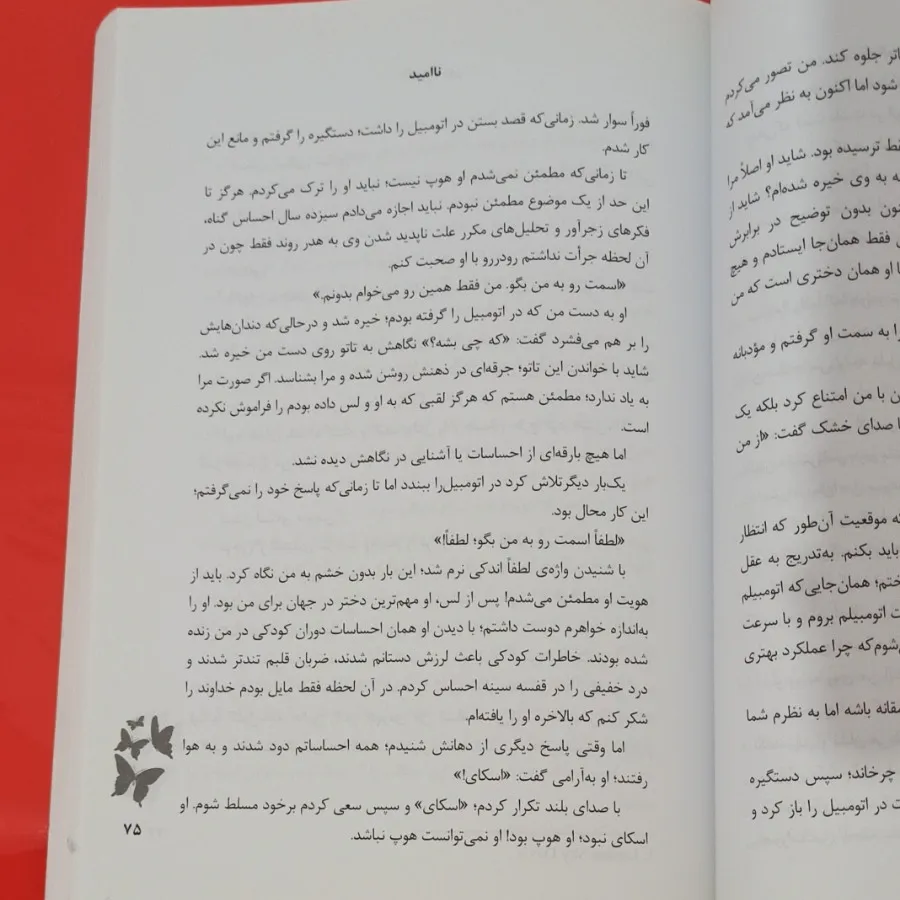 ناامید
فوراً سوار شد. زمانی‌که قصد بستن در اتومبیل را داشت؛ دستگیره را گرفتم و مانع این
کار شدم.
تا زمانی‌که مطمئن نمی‌شدم او هوپ نیست؛ نباید او را ترک می‌کردم. هرگز تا
این حد از یک موضوع مطمئن نبودم. نباید اجازه می‌دادم سیزده سال احساس گناه،
فکرهای زجرآور و تحلیل‌های مکرر علت ناپدید شدن وی به هدر روند فقط چون در
آن لحظه جرأت نداشتم رودررو با او صحبت کنم.
«اسمت رو به من بگو. من فقط همین رو می‌خوام بدونم.»
او به دست من که در اتومبیل را گرفته بودم؛ خیره شد و درحالی‌که دندان‌هایش
را بر هم می‌فشرد گفت: «که چی بشه؟» نگاهش به تاتو روی دست من خیره شد.
شاید با خواندن این تاتو؛ جرقه‌ای در ذهنش روشن شده و مرا بشناسد. اگر صورت مرا
به یاد ندارد؛ مطمئن هستم که هرگز لقبی که به او و لس داده بودم را فراموش نکرده
است.
اما هیچ بارقه‌ای از احساسات یا آشنایی در نگاهش دیده نشد.
یک‌بار دیگرتلاش کرد در اتومبیل‌را ببندد اما تا زمانی‌که پاسخ خود را نمی‌گرفتم؛
این کار محال بود.
«لطفاً اسمت رو به من بگو؛ لطفاً!»
با شنیدن واژه‌ی لطفاً اندکی نرم شد؛ این بار بدون خشم به من نگاه کرد. باید از
هویت او مطمئن می‌شدم! پس از لس، او مهم‌ترین دختر در جهان برای من بود. او را
به‌اندازه خواهرم دوست داشتم؛ با دیدن او همان احساسات دوران کودکی در من زنده
شده بودند. خاطرات کودکی باعث لرزش دستانم شدند، ضربان قلبم تندتر شدند و
درد خفیفی را در قفسه سینه احساس کردم. در آن لحظه فقط مایل بودم خداوند را
شکر کنم که بالاخره او را یافته‌ام.
اما وقتی پاسخ دیگری از دهانش شنیدم؛ همه احساساتم دود شدند و به هوا
رفتند؛ او به‌آرامی گفت: «اسکای!»
با صدای بلند تکرار کردم؛ «اسکای» و سپس سعی کردم برخود مسلط شوم. او
اسکای نبود؛ او هوپ بود! او نمی‌توانست هوپ نباشد.
۷۵
جلوه کند. من تصور می‌کردم
شود اما اکنون به نظر می‌آمد که
ترسیده بود. شاید او اصلاً مرا
به وی خیره شده‌ام؟ شاید از
بدون توضیح در برابرش
فقط همان‌جا ایستادم و هیچ
او همان دختری است که من
را به سمت او گرفتم و مؤدبانه
با من امتناع کرد بلکه یک
صدای خشک گفت: «از من
که موقعیت آن‌طور که انتظار
باید بکنم. به‌تدریج به عقل
همان‌جایی‌که اتومبیلم
اتومبیلم بروم و با سرعت
که چرا عملکرد بهتری
باشه اما به نظرم شما
چرخاند؛ سپس دستگیره
در اتومبیل را باز کرد و